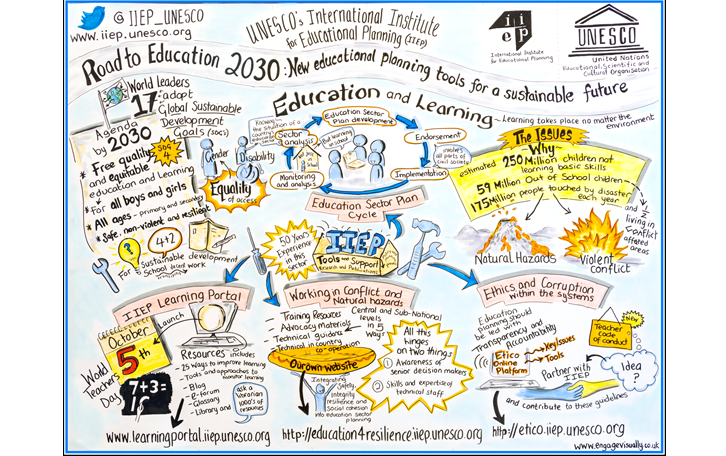 @IIEP_UNESCO
www.iiep.unesco.org
UNESCO's International Institute
for Educational Planning (IIEP)
iiep
International Institute
for Educational Planning
UNESCO
United Nations
Educational, Scientific and
Cultural Organisation
Road to Education 2030: New educational planning tools for a sustainable future
World leaders
adopt
17 Global Sustainable
Development
Goals (SDGs)
Agenda
by 2030
SDG
4
* Free quality
and equitable
education and learning
* For all boys and girls
* All ages - primary and secondary
* Safe, non-violent and resilient
?
4+2
For Sustainable development
School based work
Education and Learning
Learning takes place no matter the
environment
Knowing
the situation of a
country
Sector
analysis
Education Sector
Plan development
Put learning
in school
Endorsement
involves
all parts of
civil society
Implementation
Monitoring
and analysis
Gender
Disability
Equality
of access
Education Sector Plan
Cycle
The Issues
Why-
estimated 250 Million children not
learning basic skills
59 Million Out of School children
175 Million people touched by disaster
each year
and 1/2
living in
Conflict
affected
areas
Natural Hazards
Violent
conflict
50 Years
Experience
in this
Sector
IIEP
Tools and Support
Research and Publications
IIEP Learning Portal
Launch
October
5th
World
Teachers
Day
7+3=
Resources includes
- 25 Ways to improve learning
- Tools and approaches to
monitor learning
- Blog
- e-forum
- Glossary
- Library and
ask a
librarian
1000's of
resources
www.learningportal.iiep.unesco.org
Working in Conflict and
Natural hazards
- Training Resources
- Advocacy materials
- Technical guidance
- Technical in country
co-operation
Central and Sub-National
levels
in 5
Ways
Our own website
Integrating
Safety,
integrity
resilience and
Social cohesion
into education sector
planning
All this
hinges
on two things
1 Awareness of
senior decision makers
2 Skills and expertise of
technical staff
http://education4resilience.iiep.unesco.org
Ethics and Corruption
within the systems
Education
planning should
be led with
Transparency and
Accountability
Etico
Online
Platform
Key Issues
Tools
NEW
Teacher
code of
conduct
Partner with
IIEP
Idea?
and contribute to these guidelines
http://etico.iiep.unesco.org
www.engagevisually.co.uk